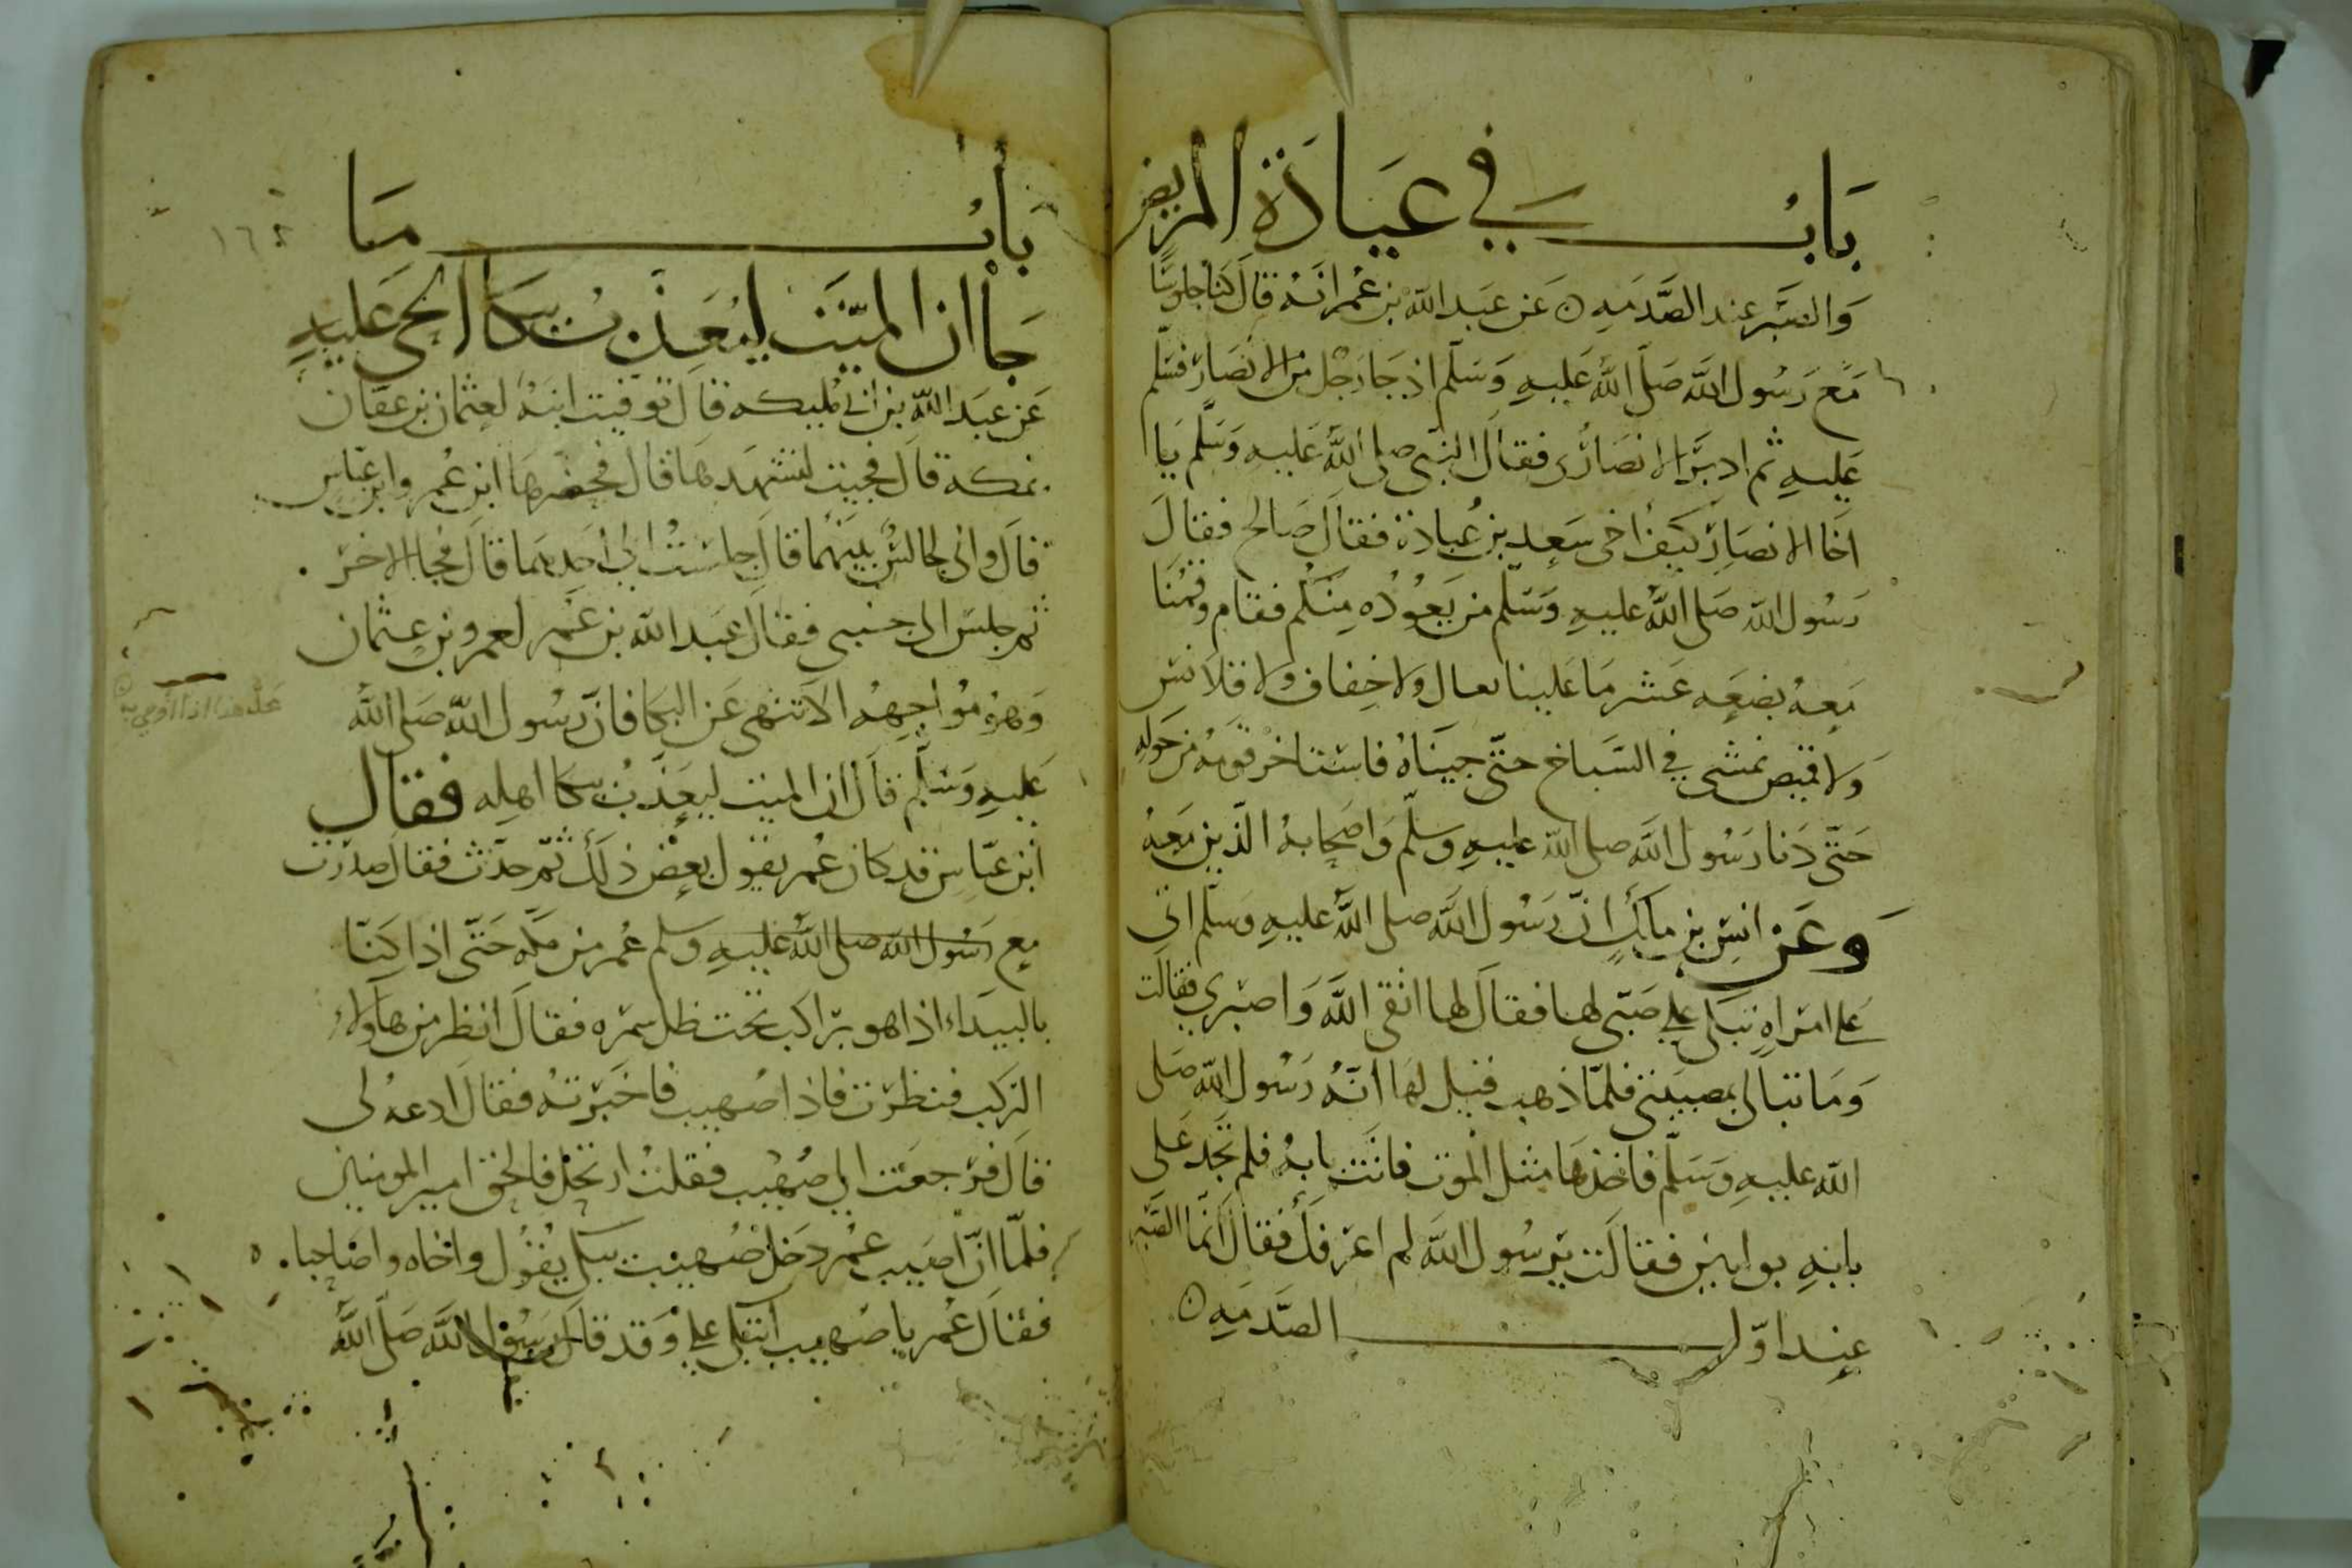 بَابُ في عيَادَة المريض
وَالصَّبر عند الصَّدمَهِ ن عَن عَبد الله بن عُمر انَه قال كنا جلوسًا
مَعَ رَسُول الله صَلى الله عَليهِ وَسَلم اذ جَا رَجُل من الانصَار فسَلم
عَليهِ ثم ادبَر الانصَارُى فقال النبَي صلى الله عَليهِ وَسَلم يَا
اخَا الانصَارِ كيَف اخى سَعد بن عُبادة فقال صَالح فقال
رَسُول الله صَلى الله عليهِ وَسَلم من يَعُودُه منكم فقام وقمُنا
مَعهُ بضعَه عَشر مَا عَلينا نعال ولا خِفاف ولا قلانس
ولا قميص نمشى في السَباخ حتى جيَناهُ فاستاخر قومَهُ من حَولهِ
حَتى دَنا رَسُول الله صلى الله عليهِ وسلم وَاصحَابهُ الذين مَعهُ
وعَن انس بن مالكٍ انّ رَسُول الله صلى الله عليهِ وسَلم اتى
على امرَاهٍ تبكى على صَبّى لها فقال لها اتقى الله وَاصبرى فقالت
وَمَا تبالى بمصيبَتى فلمّا ذهب قيل لهَا انهُ رَسُول الله صَلى
الله عليهِ وَسَلم فاخذهَا مثل الموَت فاتَت بابهُ فلم تجَد عَلى
بابهِ بوابين فقالَت يَرسُول الله لم اعرفك فقال انمَا الصَبر
عند اوّل الصَدمَهِ ن
بَابُ مَا
جَا ان الميّت ليُعَذبُ ببكا الحى عَليهِ
عَن عبَد الله بن ابى مُليكه قال توفيت ابنَهُ لعثمان بن عفان
بمكة قال فجيت لنشهَدهَا قال فحضرهَا ابن عُمر وابن عَباس
قال وانى لجالسٌ بينهمَا قال جلسَتُ الى احَدِهمَا قال فجا الاخر
ثم جلسَ الى جنبى فقال عَبد الله بن عُمر لعمرو بن عثمان
وَهوَ مُواجِههُ الا تنهى عَن البكا فان رسُول الله صَلى الله
عَليهِ وَسَلم قال ان الميت ليعَذبُ ببكا اهله فقال
ابن عبّاس قد كان عُمر يقول بعض ذلك ثمّ حدّث فقال صدرت
مع رسُول الله صلى الله عليهِ وسلم عُمر من مكه حَتى اذا كنّا
بالبيَداء اذا هو براكب تحت ظل سمره فقال انظر من هاولاء
الركب فنظرت فاذا صُهيب فاخبَرتهُ فقال ادعهُ لى
قال فرَجعَت الى صُهيب فقلتُ ارتحل فالحق امير المومنين
فلمّا انّ اصَيب عُمر دَخل صُهيب يبكى يَقول وا اخاه وا صَاحبا
فقال عُمر يا صُهيب اتبكى على وَقد قال رسُول الله صَلى الله
١٦٤